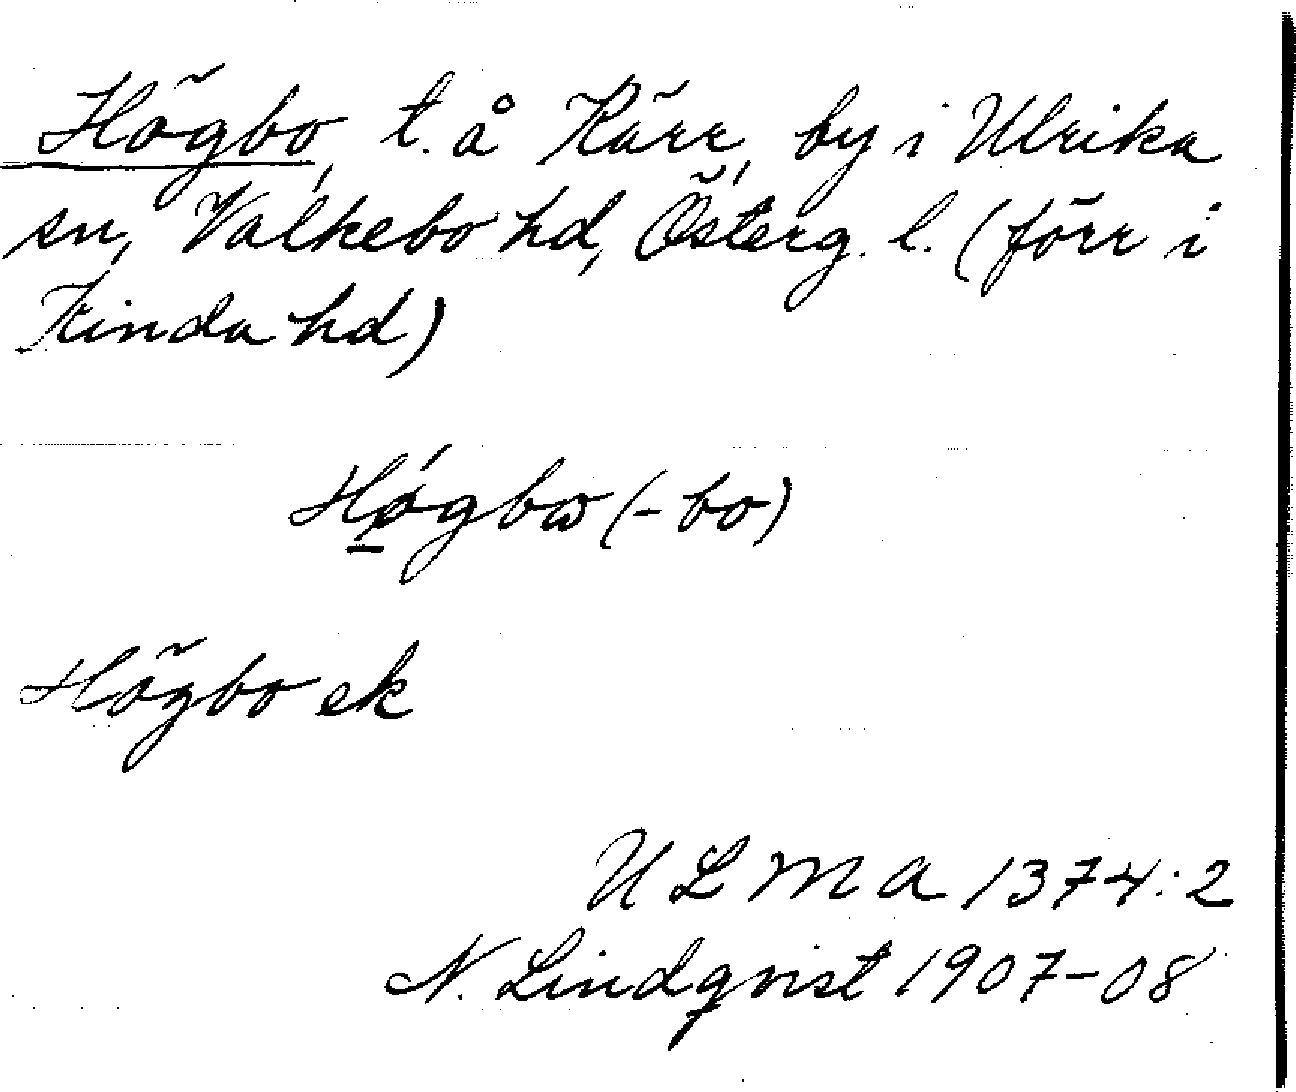 Högbo, t. å Kärr, by i Ulrika
sn, Valkebo hd, Österg. l. (förr i
Kinda hd)
Hǿgbω (-bo)
Högbo ek
ULMA 1374:2
N. Lindqvist 1907-08